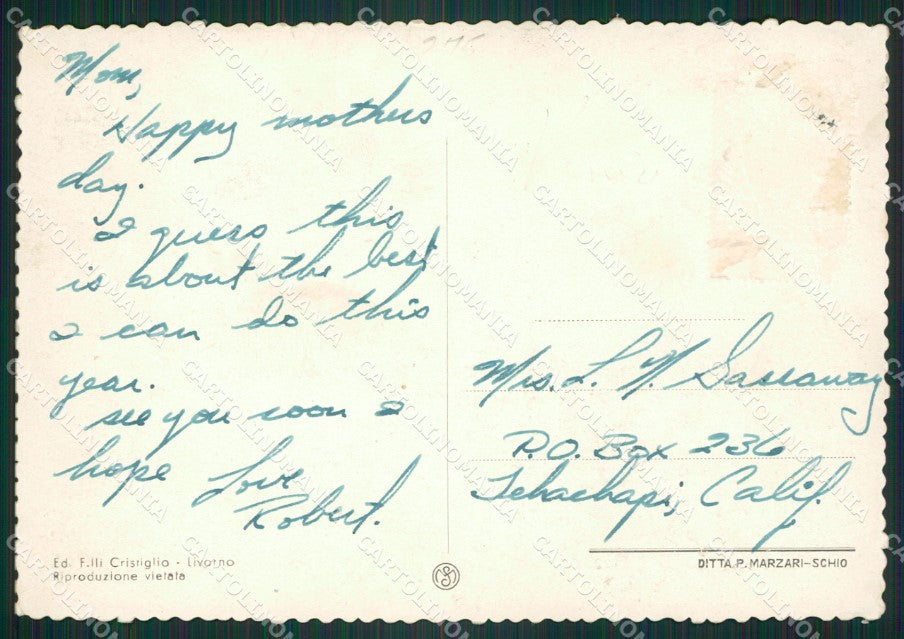 Mom,
Happy mothers
day.
I guess this
is about the best
I can do this
year.
see you soon I
hope
Love
Robert.
Mrs. L. N.
P.O. Box 236
Tehachapi, Calif.
Ed. F.lli Cristiglio - Livorno
Riproduzione vietata
DITTA P. MARZARI-SCHIO
CARTOLINOMANIA